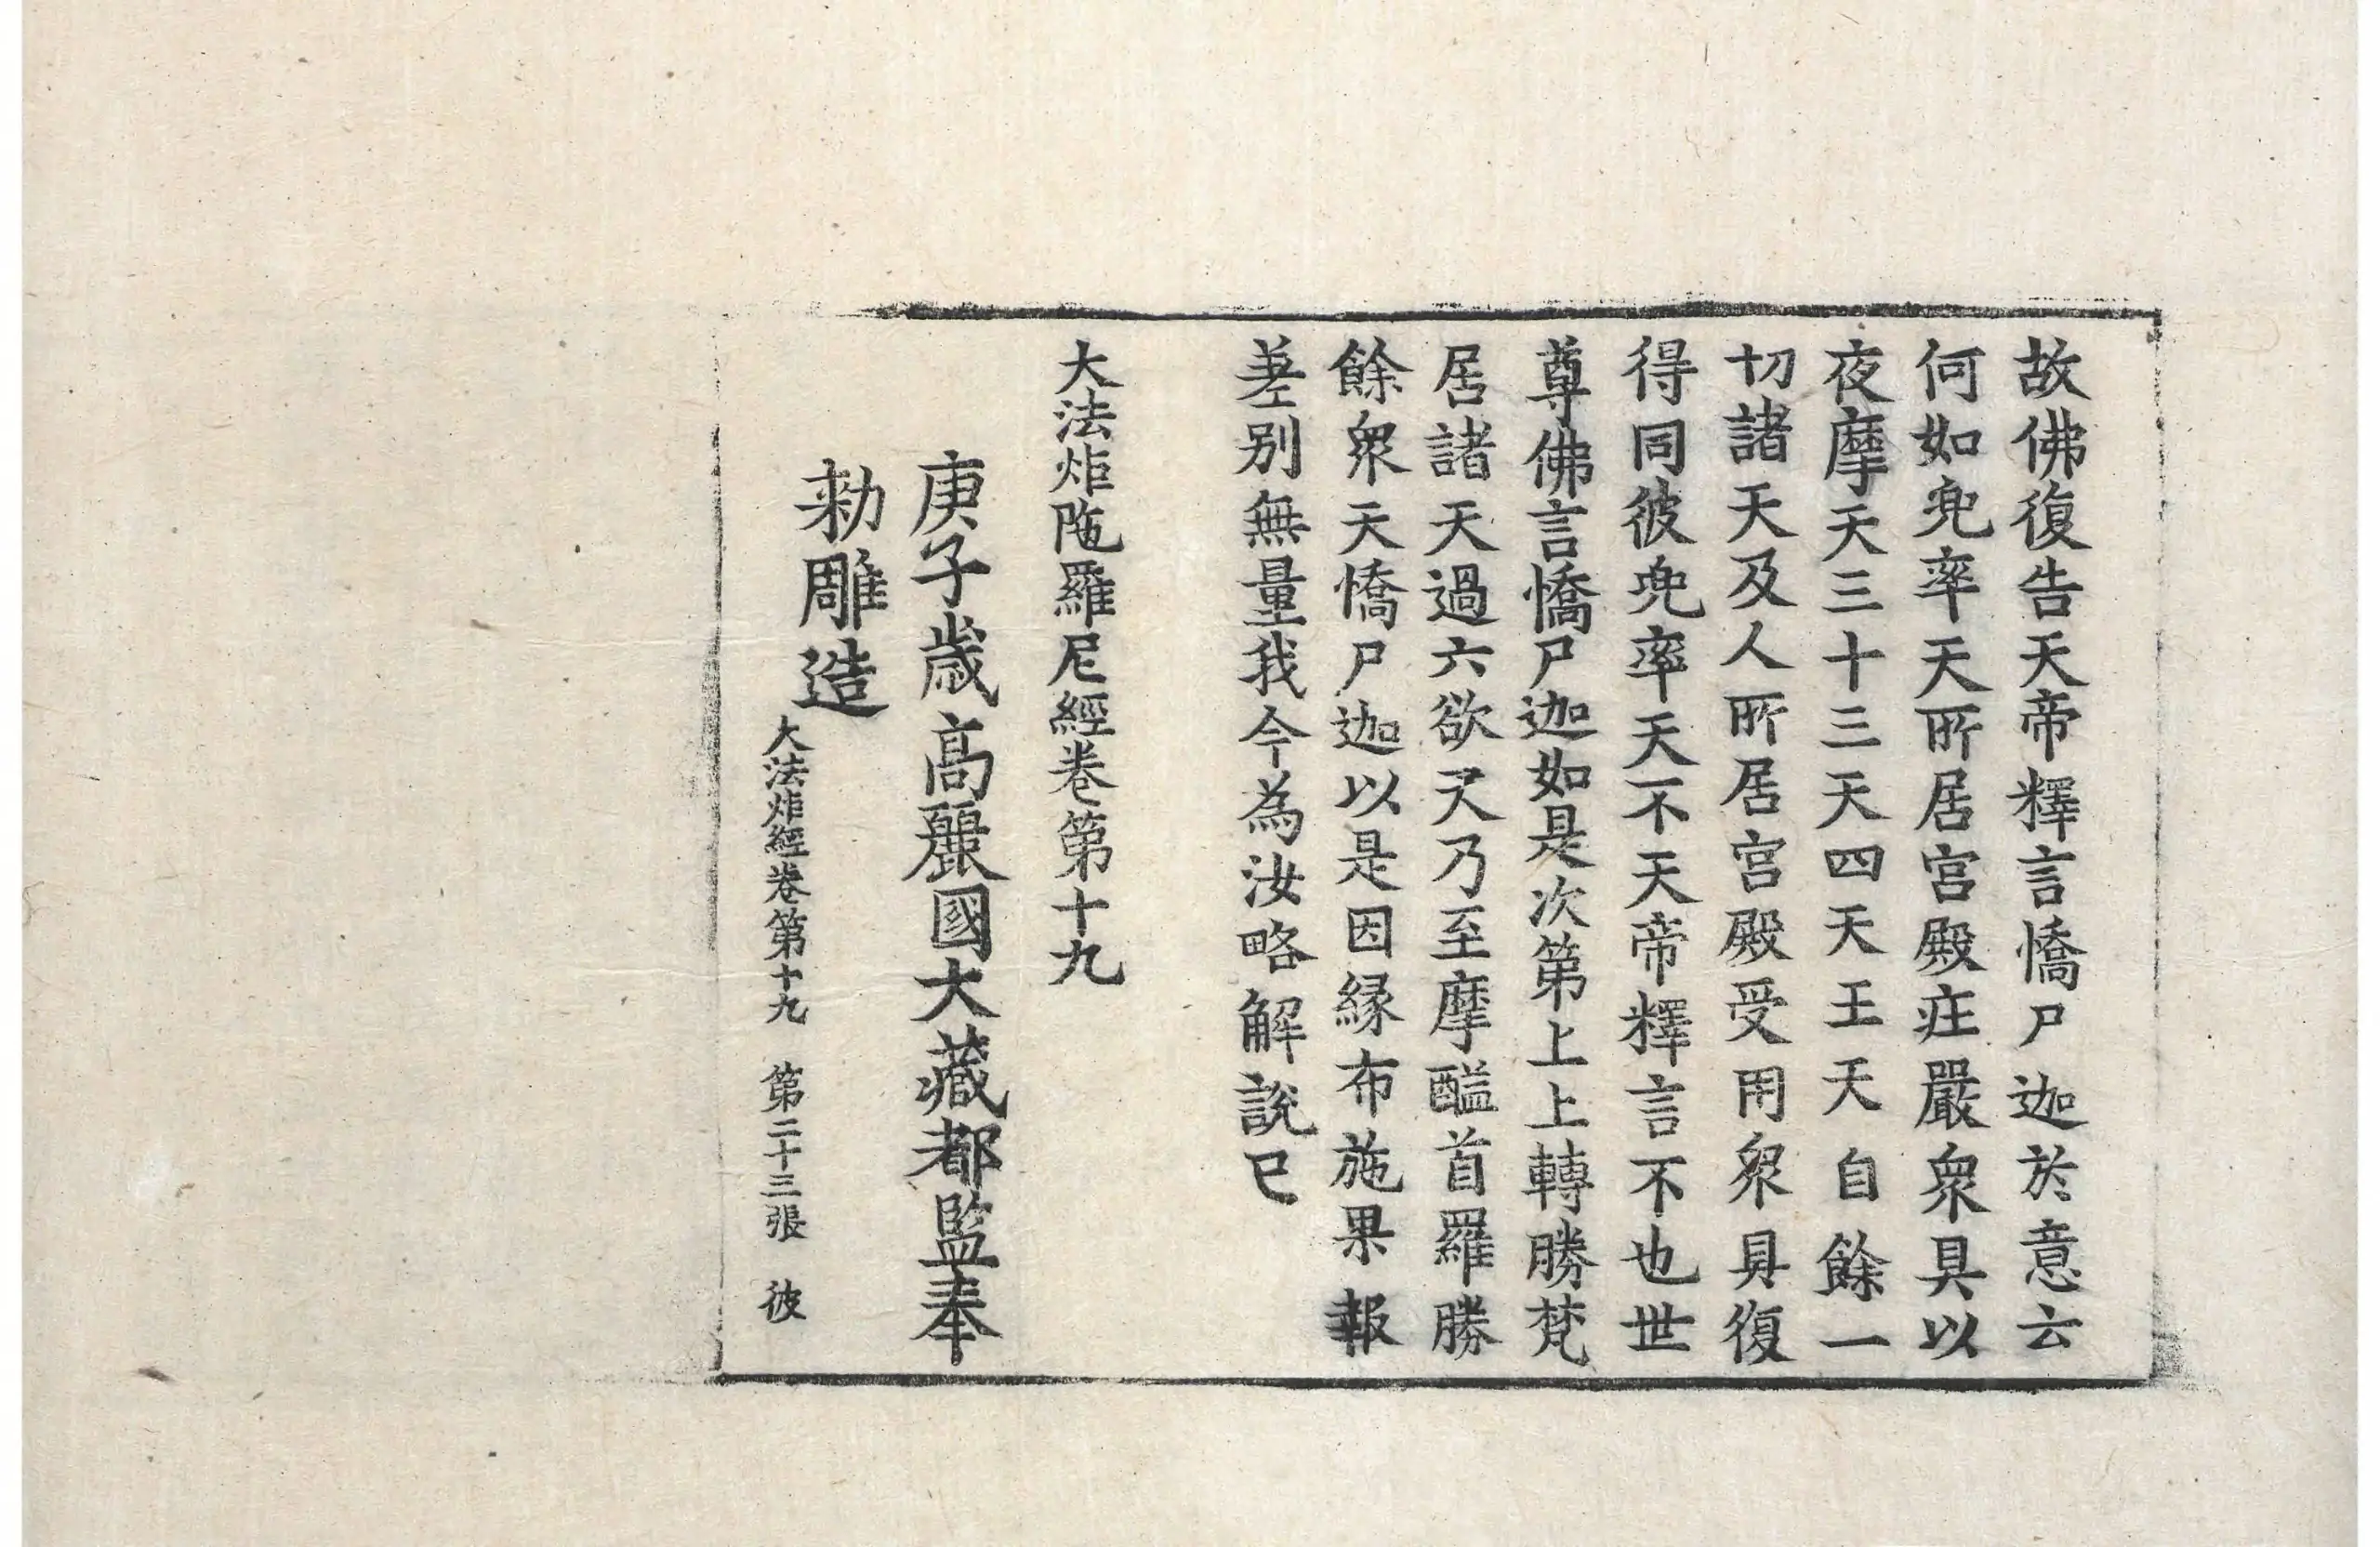 故佛復告天帝釋言憍尸迦於意云
何如兜率天所居宮殿庄嚴衆具以
夜摩天三十三天四天王天自餘一
切諸天及人所居宮殿受用衆具復
得同彼兜率天不天帝釋言不也世
尊佛言憍尸迦如是次第上上轉勝梵
居諸天過六欲天乃至摩醯首羅勝
餘衆天憍尸迦以是因縁布施果報
差別無量我今為汝略解説已
大法炬陁羅尼經卷第十九
庚子歳高麗國大藏都監奉
勅雕造
大法炬經卷第十九 第二十三張 彼